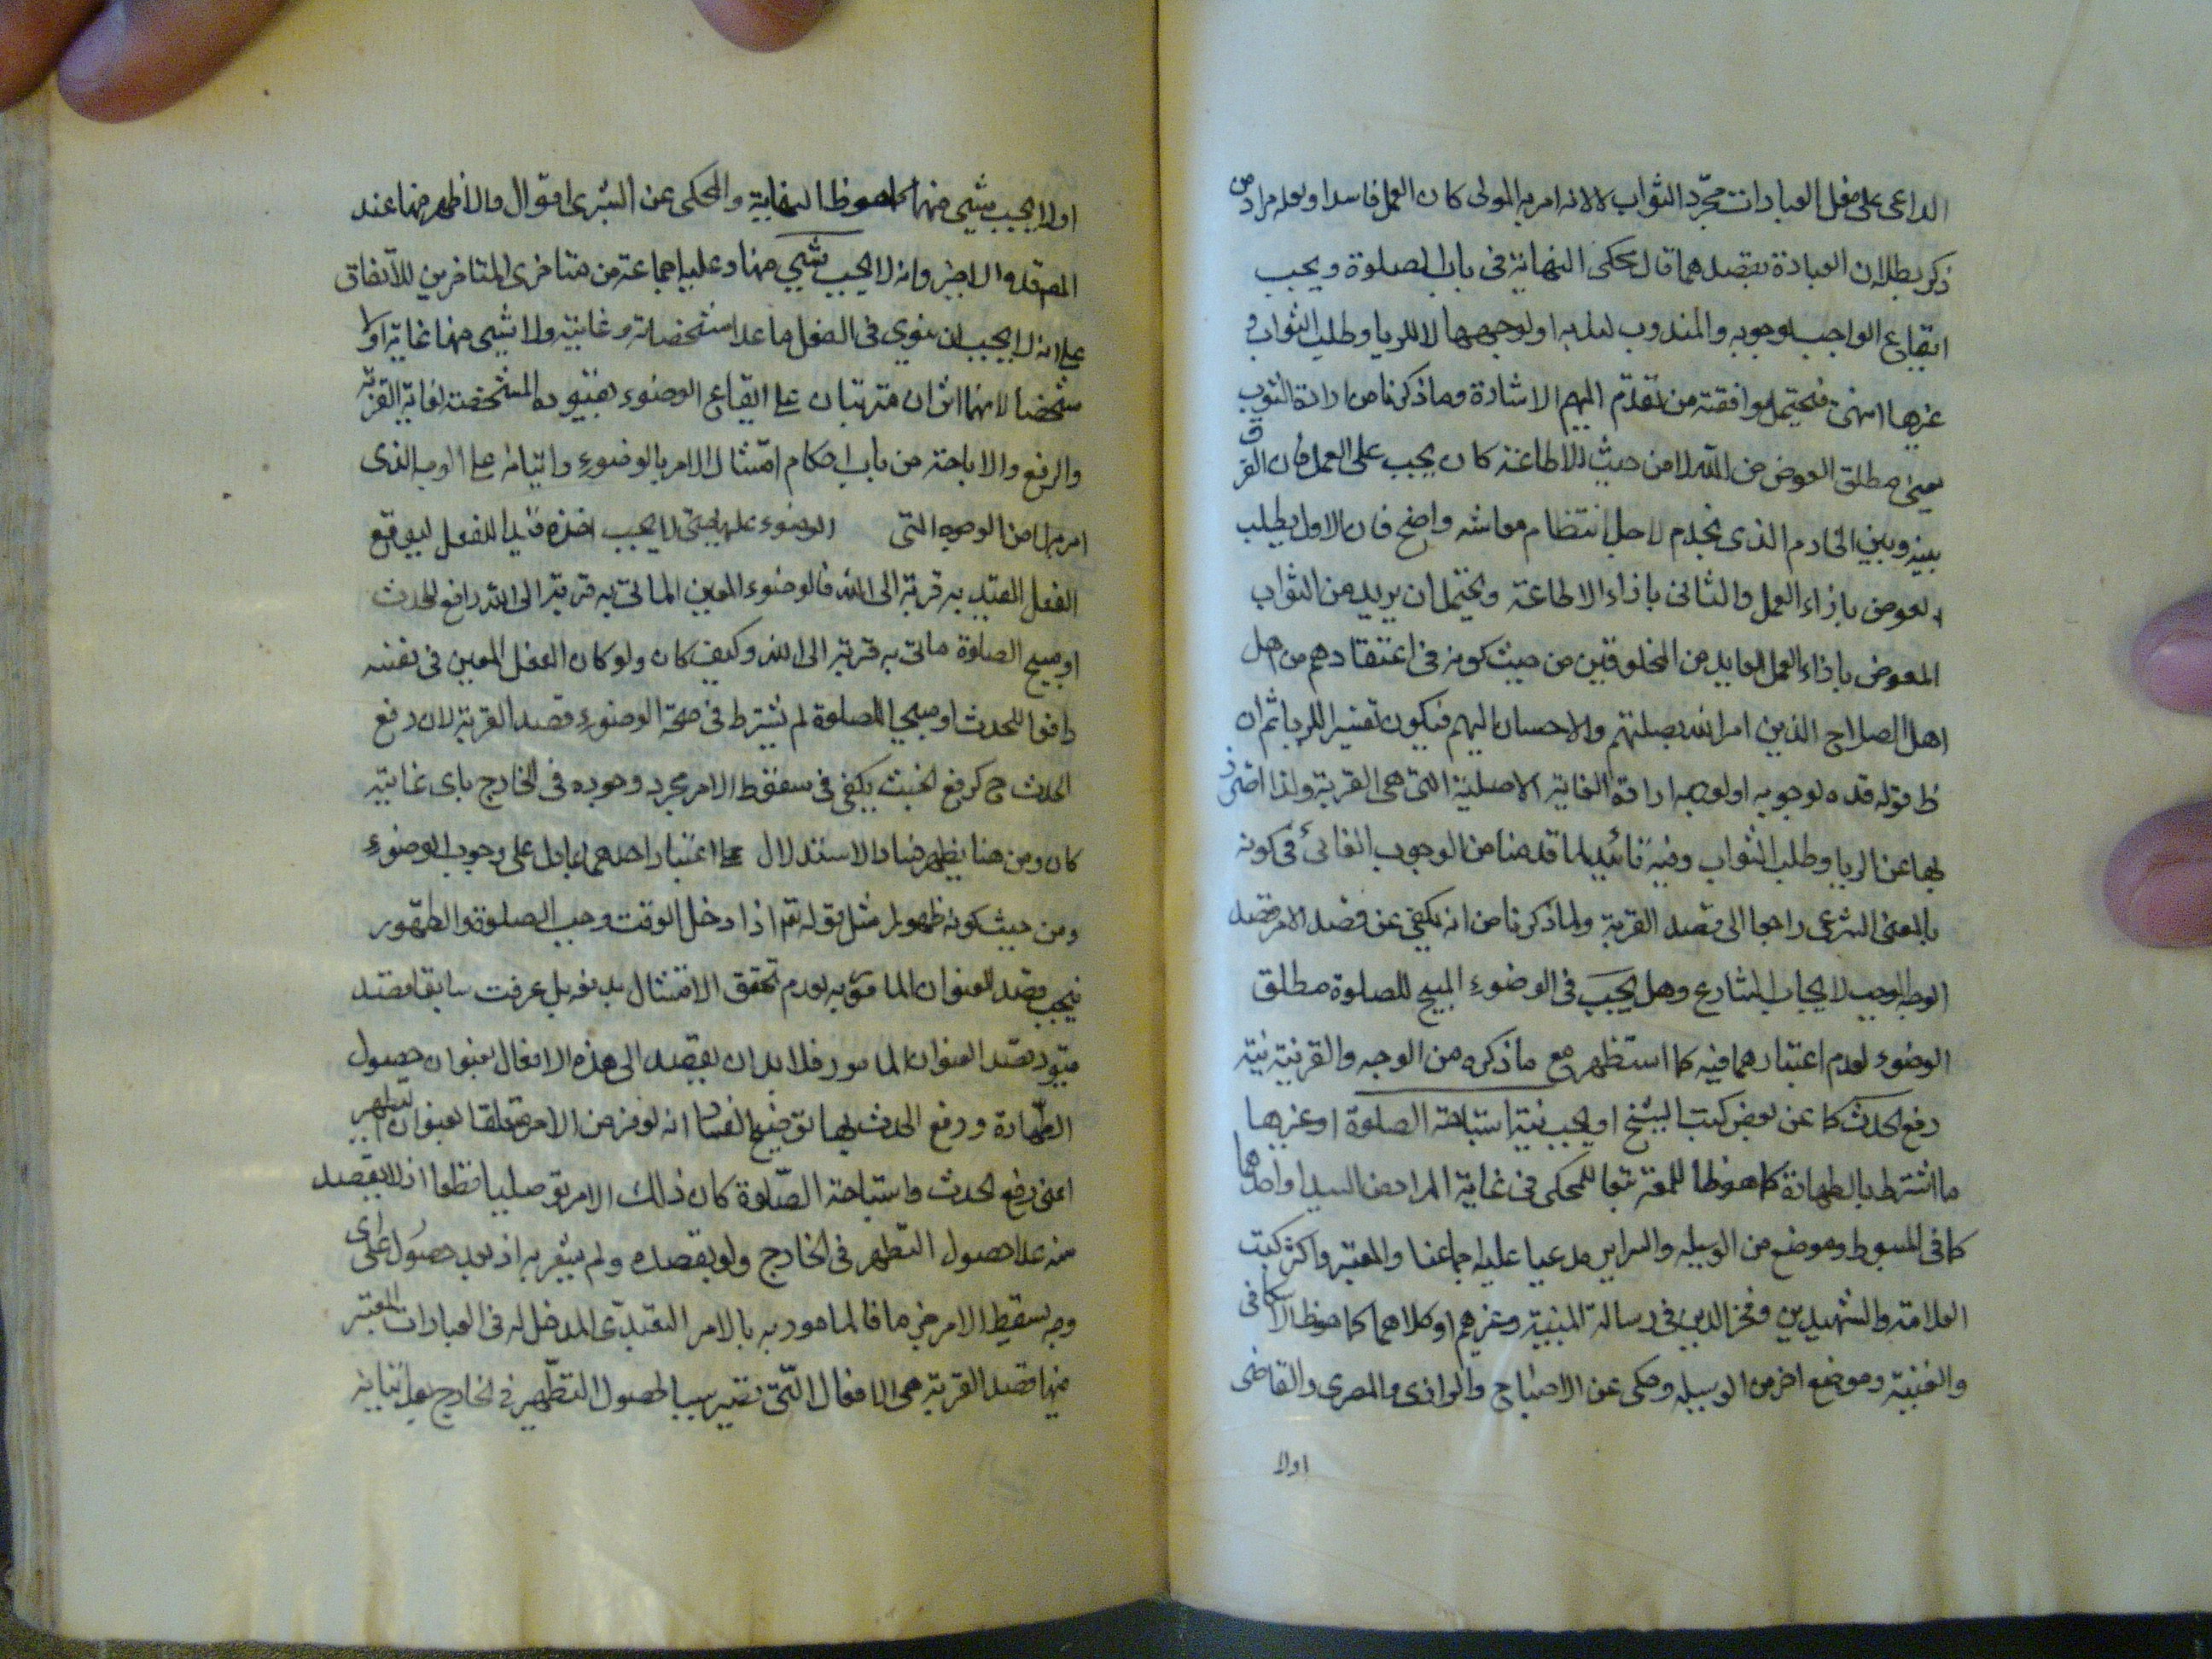 الداعى على فعل العبادات مجرّد الثواب لا لانه امر به المولى كان العمل فاسدا ولعله مراد من
ذكر بطلان العبادة بقصدهما قال محكى النهاية فى باب الصلوة ويجب
ايقاع الواجب لوجوبه والمندوب لندبه او لوجههما لا للريا وطلب الثواب و
غيرها انتهى فيحتمل موافقته من تقدّم اليهم الاشارة وما ذكرنا من ارادة الثوب
يعنى مطلق العوض من الله لا من حيث الاطاعة كان يجب على العمل فان الفرق
بينه وبين الخادم الذى يخدم لاجل انتظام معاشه واضح فان الاول يطلب
العوض بازاء العمل والثانى بازاء الاطاعة ويحتمل ان يريد من الثواب
المعوض بازاء العمل العايد من المخلوقين من حيث كونه فى اعتقادهم من اهل
اهل الصلاح الذين امر الله بصلتهم والاحسان اليهم فيكون تفسيرا للريا ثم ان
ظ قوله قده لوجوبه او لوجهه ارادة الغاية الاصلية التى هى القربة ولذا احترز
بها عن الريا وطلب الثواب وفيه تائيد لما قدمنا من الوجوب الغائى فى كونه
بالمعنى الشرعى راجعا الى قصد القربة ولما ذكرنا من انه يكفى عن قصد الامر قصد
الوجه الموجب لايجاب الشارع وهل يجب فى الوضوء المبيح للصلوة مطلق
الوضوء لعدم اعتبارهما فيه كما استظهر مع ما ذكره من الوجه والقربة نية
رفع الحدث كما عن بعض كتب الشيخ او يجب نية استباحة الصلوة او غيرها
ما اشترط بالطهارة كما هو ظ المعتبر تبعا للمحكى فى غاية المراد عن السيد او احدهما
كما فى المبسوط وموضع من الوسيله والسراير مدعيا عليه اجماعنا والمعتبر واكثر كتب
العلامة والشهيدين وفخر الدين فى رسالة النية وغيرهم او كلاهما كما هو ظ الكافى
والغنية وموضع اخر من الوسيله وحكى عن الاصباح والراوندى والمصرى والقاضى
اولا
اولا يجب شيى منهما كما هو ظ النهاية والمحكى عن البشرى اقوال والاظهر منها عند
المص قده الاخير وانه لا يجب شيى منها وعليه جماعة من متاخرى المتاخرين للاتفاق
على انه لا يجب ان ينوى فى الفعل ما عدا مشخصاته وغايته ولا شيى منها غاية اولا
مشخصا لانهما اثران مترتبان على ايقاع الوضوء بقيوده المشخصة لغاية القربة
والرفع والاباحة من باب احكام امتثال الامر بالوضوء واتيانه على الوجه الذى
امر به لا من الوجوه التى الوضوء عليها حتى لا يجب اخذه قيدا للفعل ليقع
الفعل المقيد به قربة الى الله فالوضوء المعين الماتى به قربة الى الله رافع للحدث
او مبيح الصلوة ماتى به قربة الى الله وكيف كان ولو كان الفعل المعين فى نفسه
رافعا للحدث او مبيحا للصلوة لم يشترط فى صحة الوضوء قصد القربة لان رفع
الحدث ح كرفع الخبث يكفى فى سقوط الامر مجرد وجوده فى الخارج باى غاية
كان ومن هنا يظهر فساد الاستدلال على اعتبار احدهما بما دل على وجوب الوضوء
ومن حيث كونه طهورا مثل قوله تع اذا دخل الوقت وجب الصلوة والطهور
فيجب قصد العنوان المامور به لعدم تحقق الامتثال بدونه بل عرفت سابقا قصد
قيود قصد العنوان المامور فلا بد ان يقصد الى هذه الافعال بعنوان حصول
الطهارة ورفع الحدث بها توضيح الفساد انه لو فرض الامر متعلقا بعنوان التطهير
اعنى رفع الحدث واستباحة الصلوة كان ذلك الامر توصليا قطعا اذ لا يقصد
منه عدا حصول التطهر فى الخارج ولو بقصده ولم يشعر به اذ بعد حصول على اى
وجه يسقط الامر ح فالمامور به بالامر التعبدى المدخل له فى العبادات المعتبر
فيها قصد القربة هى الافعال التى تصير سببا لحصول التطهير فى الخارج بعد اتيانه